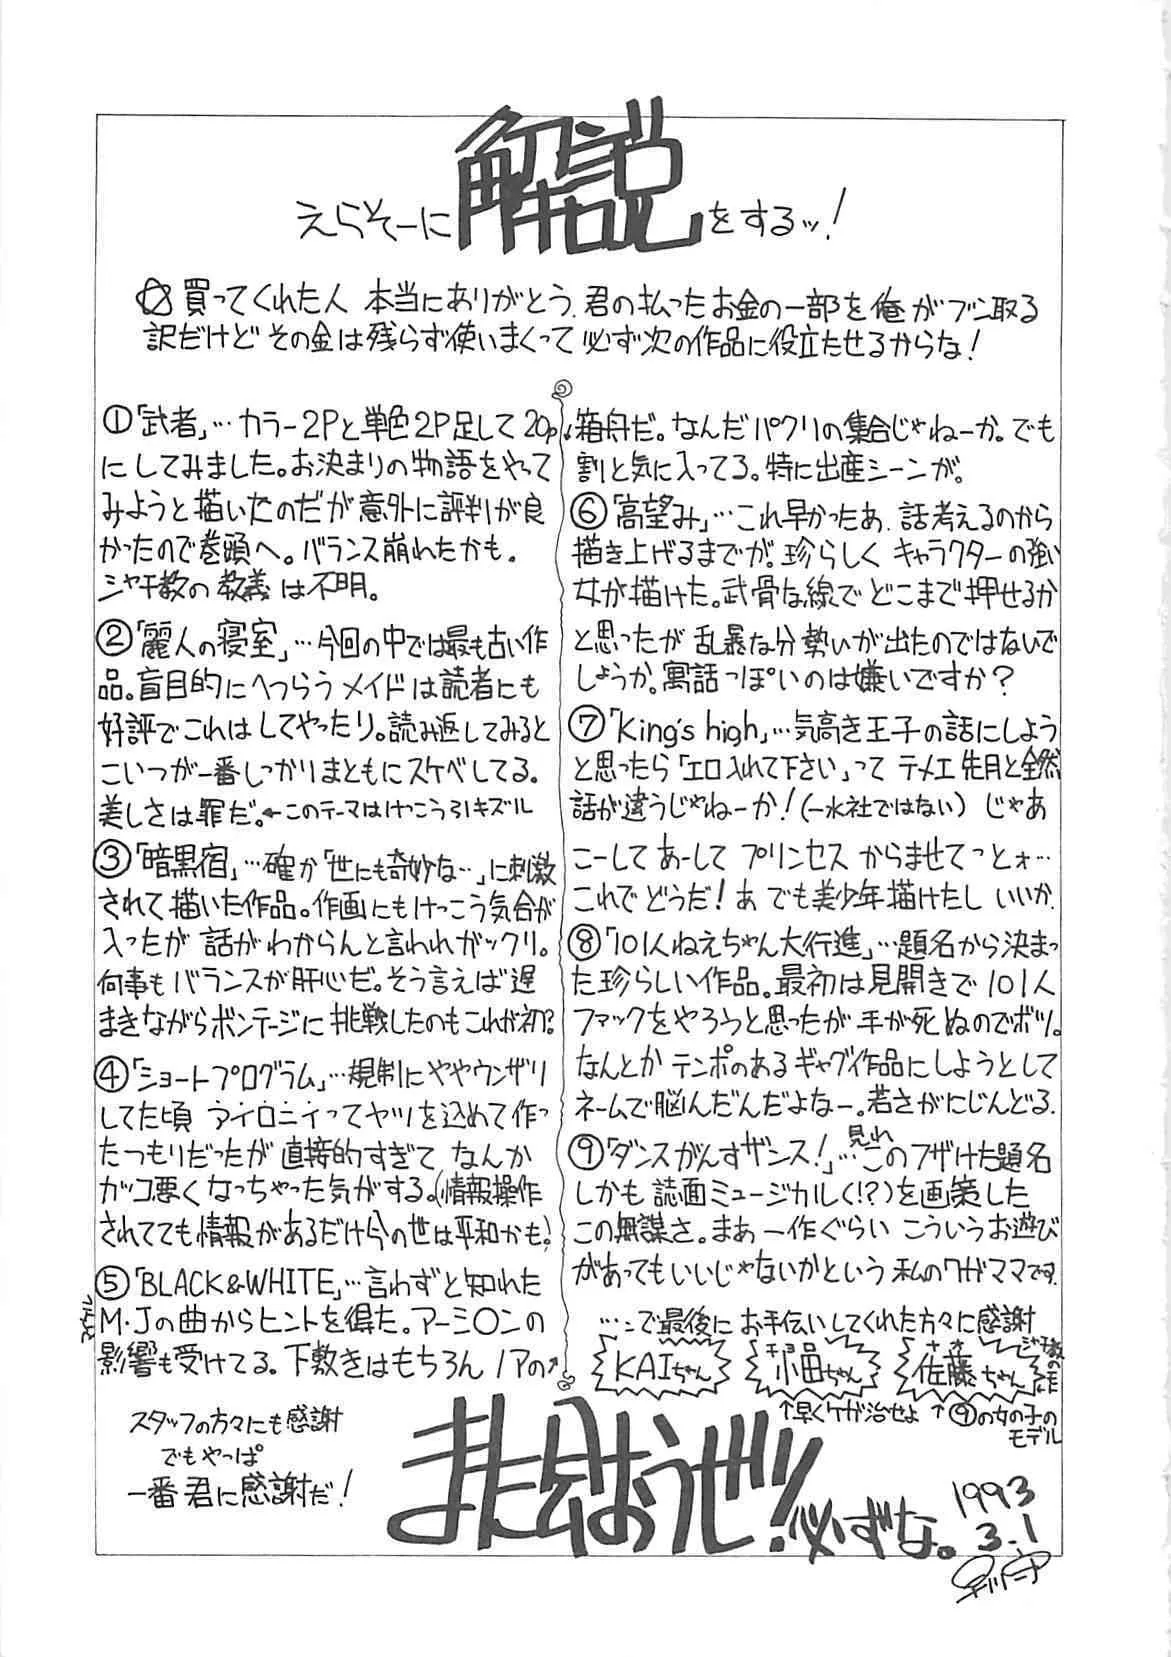 えらそーに解説をするッ!
☆買ってくれた人 本当にありがとう. 君の払ったお金の一部を俺がブン取る
訳だけど その金は残らず使いまくって 必ず次の作品に役立たせるからな!
①「武者」…カラー2Pと単色2P足して20p
にしてみました。お決まりの物語をやって
みようと描いたのだが意外に評判が良
かったので巻頭へ。バランス崩れたかも。
シャチ教の教義は不明。
②「麗人の寝室」…今回の中では最も古い作
品。盲目的にへつらうメイドは読者にも
好評でこれはしてやったり。読み返してみると
こいつが一番しっかりまともにスケベしてる。
美しさは罪だ。←このテーマはけっこう引キズル
③「暗黒宿」…確か「世にも奇妙な…」に刺激
されて描いた作品。作画にもけっこう気合が
入ったが 話がわからんと言われガックリ。
何事もバランスが肝心だ。そう言えば遅
まきながらボンテージに挑戦したのもこれが初?
④「ショートプログラム」…規制にややウンザリ
してた頃 アイロニィってヤツを込めて作っ
たつもりだったが 直接的すぎて なんか
カッコ悪くなっちゃった気がする。(情報操作
されてても情報があるだけ今の世は平和かも)
⑤「BLACK&WHITE」…言わずと知れた
M・Jの曲からヒントを得た。アーミ〇ンの
影響も受けてる。下敷きはもちろんノアの↗
↓箱舟だ。なんだパクリの集合じゃねーか。でも
割と気に入ってる。特に出産シーンが。
⑥「高望み」…これ早かったあ. 話考えるのから
描き上げるまでが. 珍らしく キャラクターの強い
女が描けた。武骨な線で どこまで押せるか
と思ったが 乱暴な分 勢いが出たのではないで
しょうか。寓話っぽいのは嫌いですか?
⑦「King's high」…気高き王子の話にしよう
と思ったら「エロ入れて下さい」って テメエ先月と全然
話が違うじゃねーか!(一水社ではない) じゃあ
こーして あーして プリンセス からませてっとォ…
これで どうだ! あ でも美少年描けたし いいか.
⑧「101人ねえちゃん大行進」…題名から決まっ
た珍らしい作品。最初は見開きで101人
ファックをやろうと思ったが 手が死ぬのでボツ。
なんとか テンポのあるギャグ作品にしようとして
ネームで悩んだんだよなー。若さがにじんどる.
⑨「ダンスがんすザンス!」…見れ このフザけた題名
しかも 誌面ミュージカル(!?)を画策した
この無謀さ。まあ一作ぐらい こういうお遊び
があってもいいじゃないかという 私のワガママです.
…で最後に お手伝いしてくれた方々に感謝
KAIちゃん 小田ちゃん 佐藤ちゃん
↑早くケガ治せよ ↑⑨の女の子の
モデル
スタッフの方々にも感謝
でもやっぱ
一番 君に感謝だ!
また会おうぜ!! 必ずな。
1993
3.1